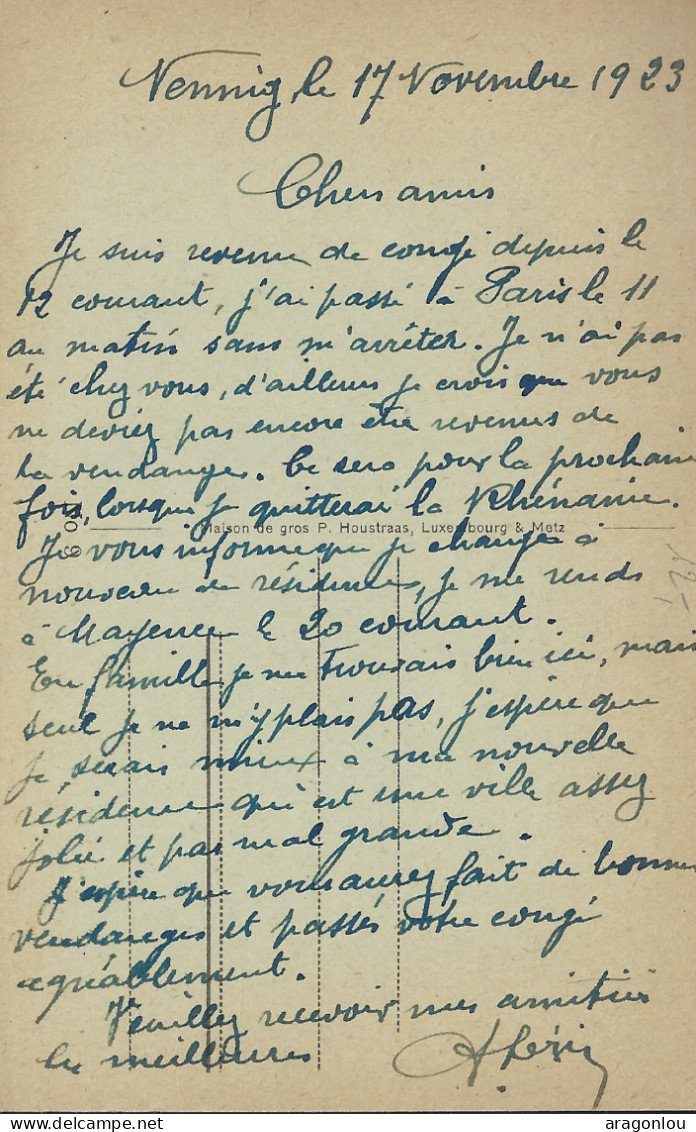 Nennig, le 17 Novembre 1923
Chers amis
Je suis revenu de congé depuis le
12 courant, j'ai passé à Paris le 11
au matin sans m'arrêter. Je n'ai pas
été chez vous, d'ailleurs je crois que vous
ne deviez pas encore être revenus de
la vendanges. Ce sera pour la prochaine
fois, lorsque je quitterai la Rhénanie.
Maison de gros P. Houstraas, Luxembourg & Metz
Je vous informe que je change à
nouveau de résidence, je me rends
à Mayence le 20 courant.
En famille je me trouvais bien ici, mais
seul je ne m'y plais pas, j'espère que
je serais mieux à ma nouvelle
résidence qui est une ville assez
jolie et pas mal grande.
J'espère que vous aurez fait de bonnes
vendanges et passés votre congé
agréablement.
Veuillez recevoir mes amitiés
les meilleures
delcampe.net
aragonlou